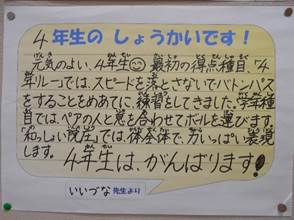 4年生の しょうかいです!
元気のよい、4年生☺ 最初の得点種目、「4
年リレー」では、スピードを落とさないでバトンパス
をすることをめあてに、練習をしてきました。学年種
目では、ペアの人と息を合わせてボールを運びます。
では、体全体で、力いっぱい表現
します。
4年生は、がんばります!
いいづな先生より